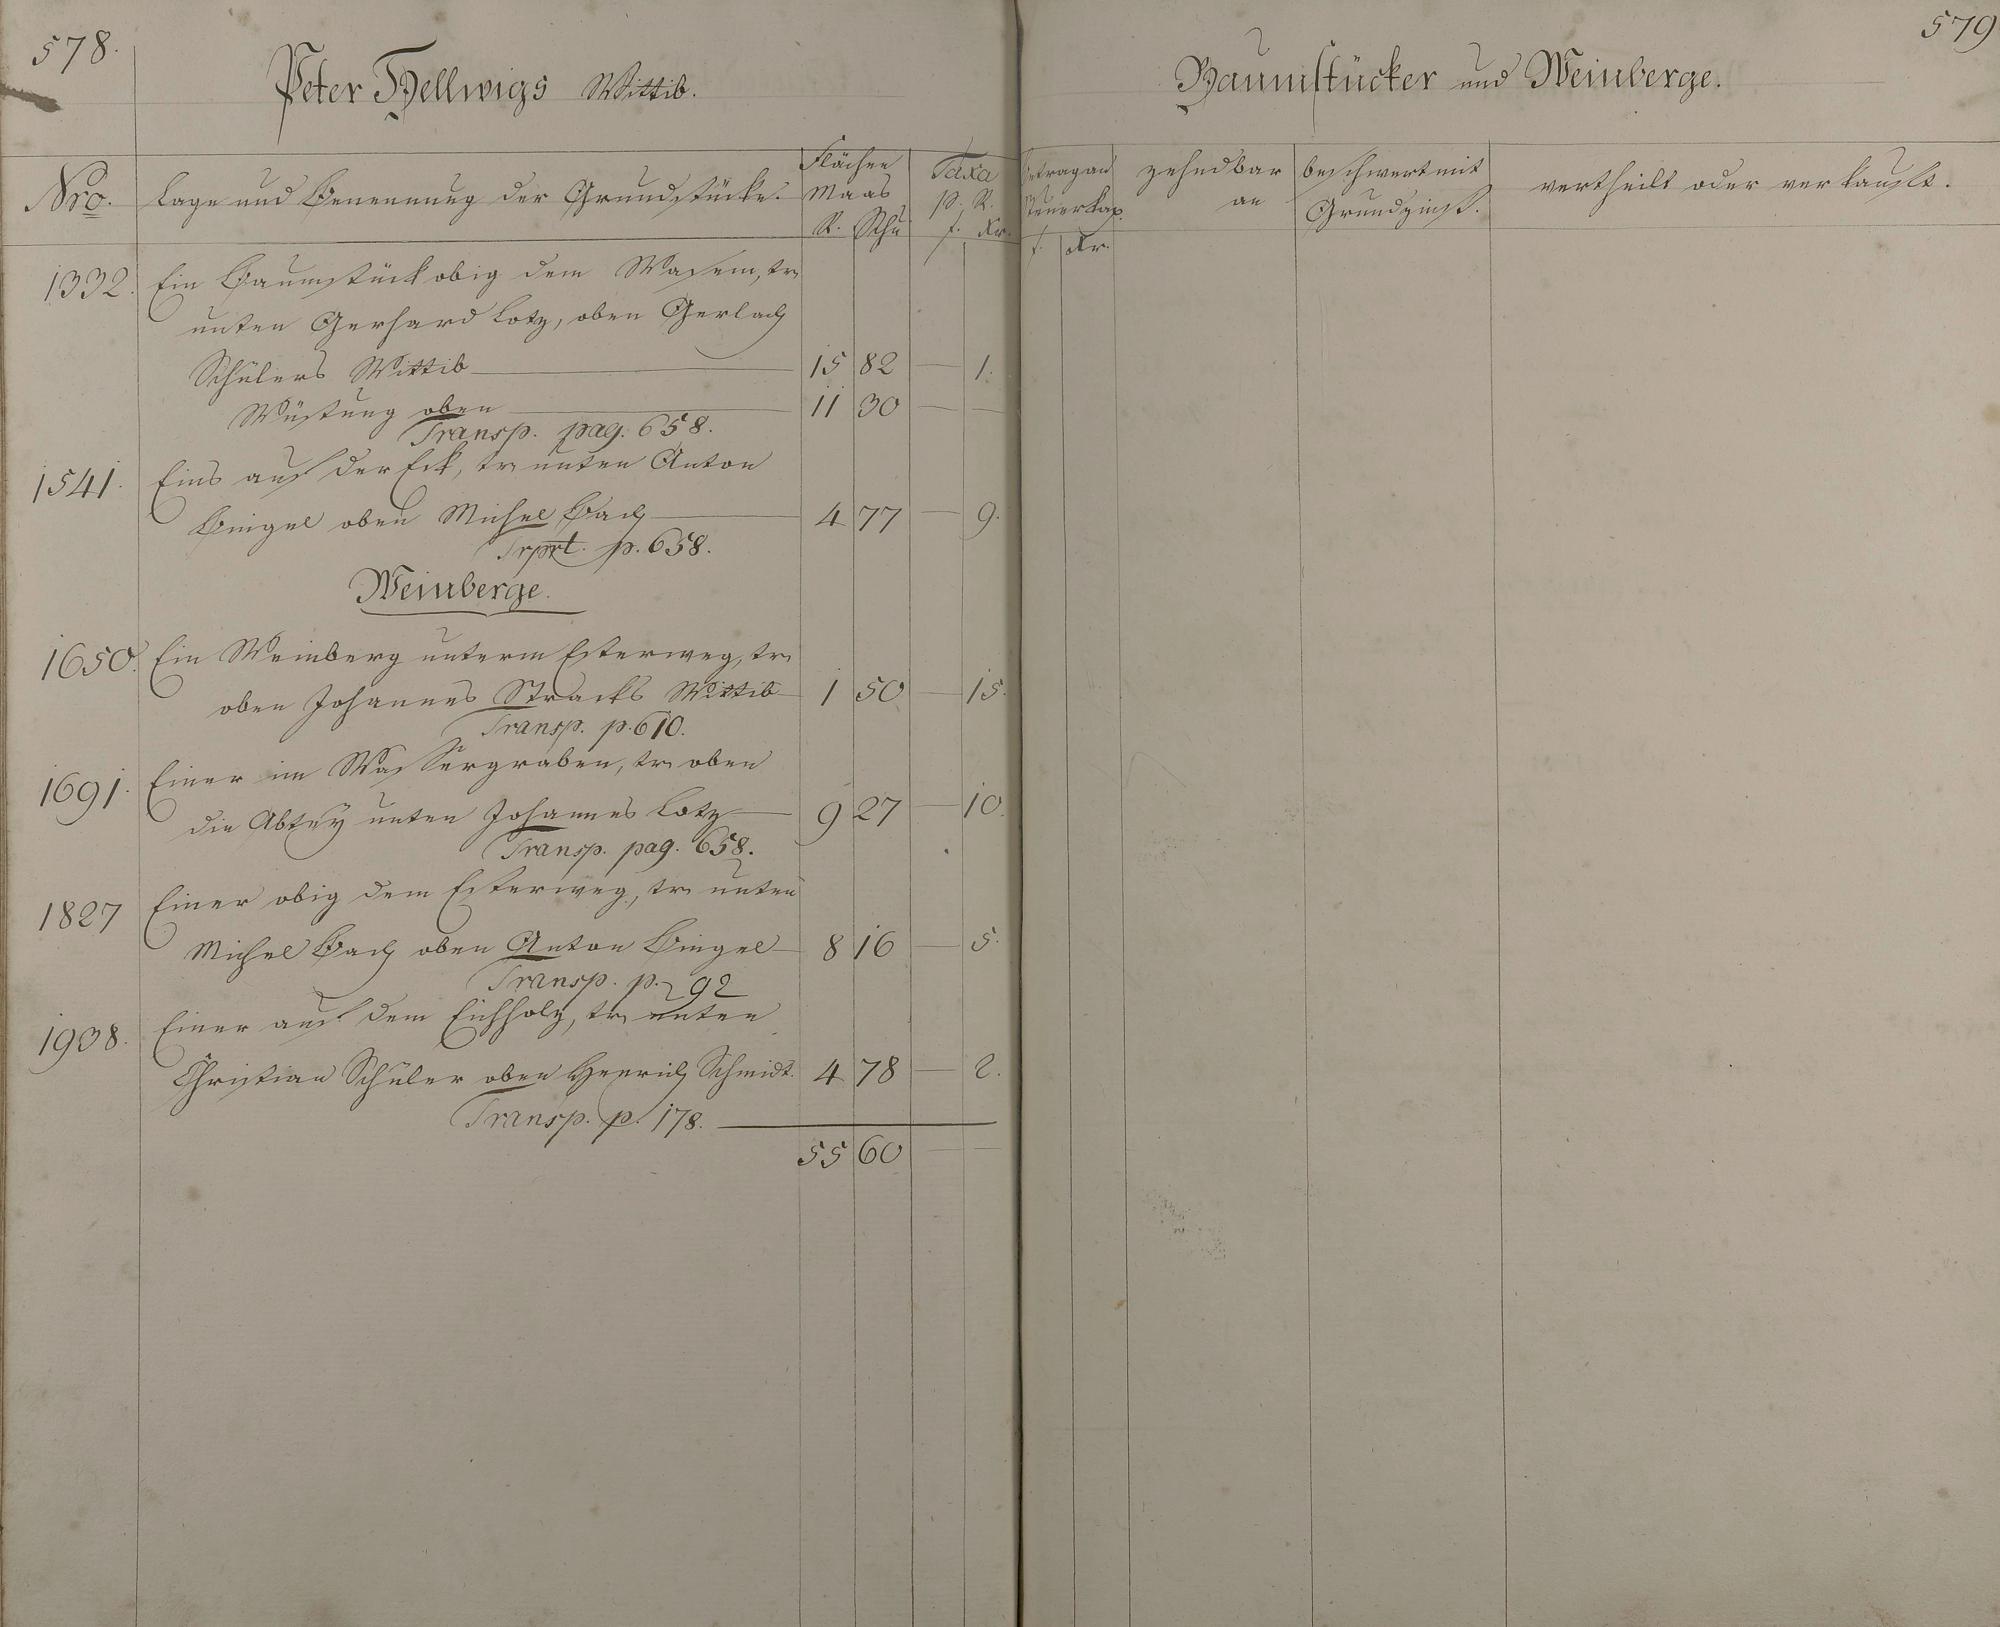 578.
Peter Hellwigs Wittib.
Nro.
Lage und Benennung der Grundstücke.
Flächen
Maas
R. Schu
Taxa
p. R.
f. Kr.
1332. Ein Baumstück obig dem Wasem, tr
unten Gerhard Lotz, oben Gerlach
Schülers Wittib — 15 82 — 1.
Wüstung oben — 11 30 — —
Transp. pag. 658.
1541. Eins auf der Eck, tr unten Anton
Bingel oben Michel Bach — 4 77 — 9.
Trprt. p. 658.
Weinberge.
1650. Ein Weinberg unterm Esterweg, tr
oben Johannes Stracks Wittib — 1 50 — 15.
Transp. p. 610.
1691. Einer im Wassergraben, tr oben
die Abtey unten Johannes Lotz — 9 27 — 10.
Transp. pag. 658.
1827 Einer obig dem Esterweg, tr unten
Michel Bach oben Anton Bingel — 8 16 — 5.
Transp. p. 92
1938. Einer auf dem Eichholz, tr unten
Christian Schüler oben Henrich Schmidt. 4 78 — 2.
Transp. p. 178.
55 60 — —
579
Baumstücker und Weinberge.
Betrag an
Steuerkap.
f. Kr.
zehndbar
an
beschwert mit
Grundzinß.
vertheilt oder verkauft.